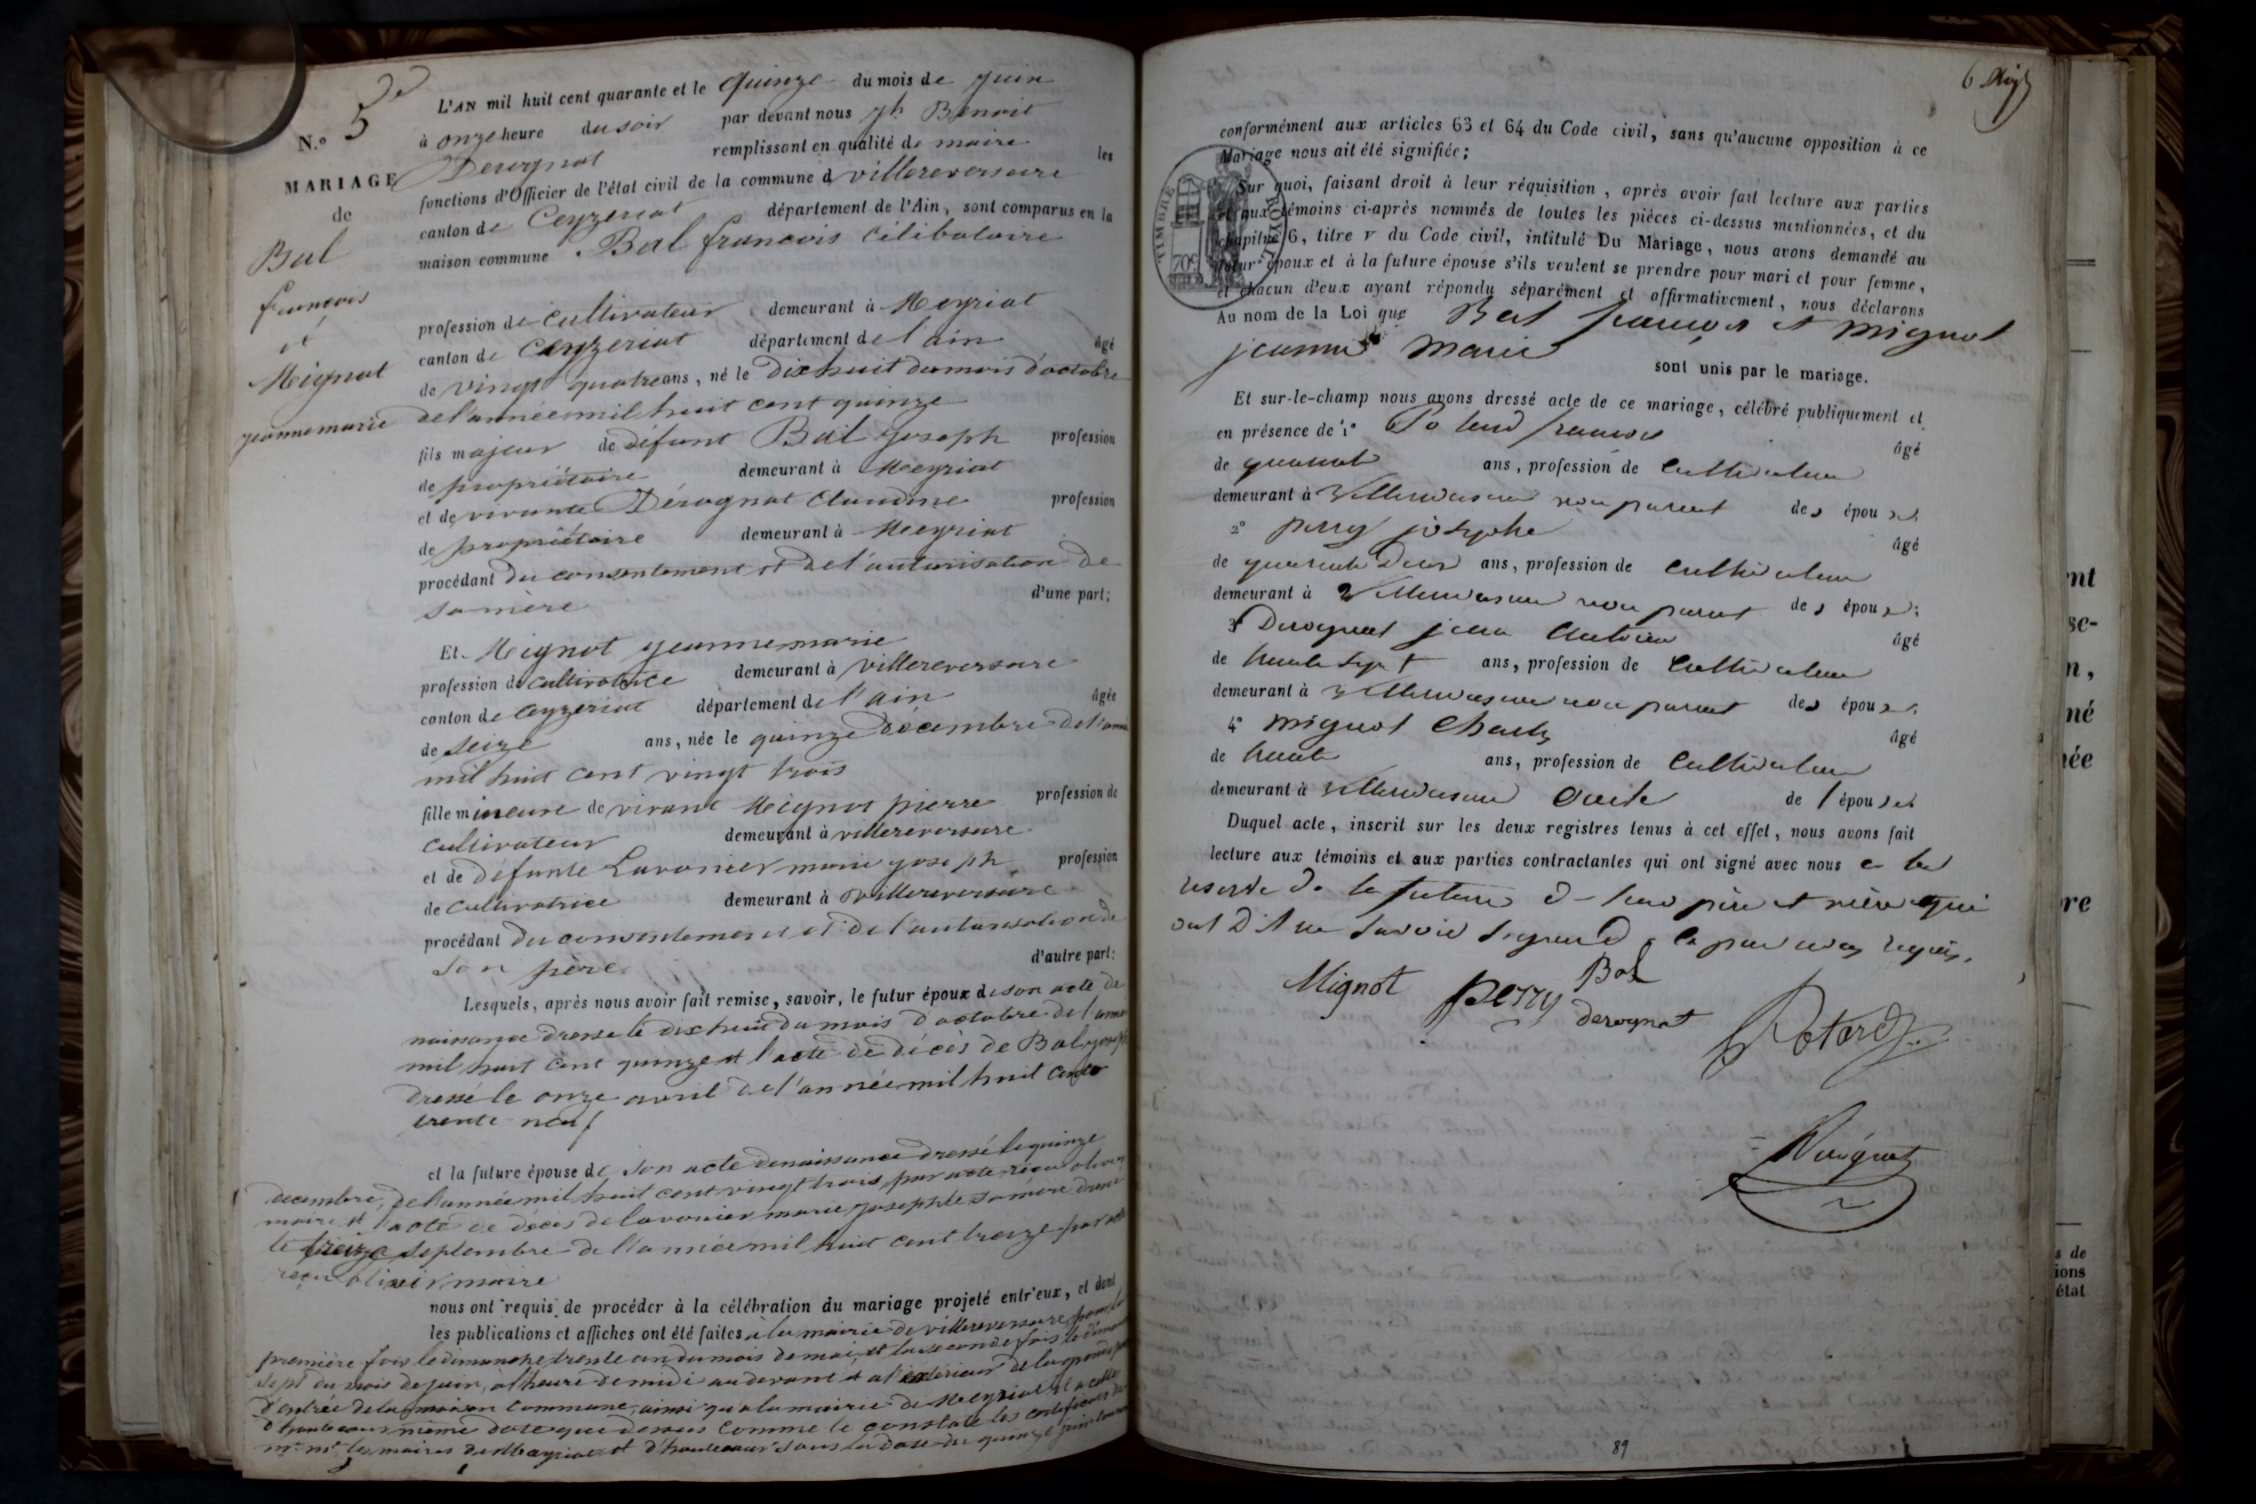 N.o 5e
MARIAGE
de
Bal
francois
et
Mignot
jeanne marie
L'AN mil huit cent quarante et le quinze du mois de juin
à onze heure du soir par devant nous jh Benoit
Derognat remplissant en qualité de maire les
fonctions d'Officier de l'état civil de la commune d villereversure
canton de Ceyzeriat département de l'Ain, sont comparus en la
maison commune Bal francois célibataire
profession de cultivateur demeurant à Meyriat
canton de Ceyzeriat département de l'ain âgé
de vingt quatre ans, né le dix huit du mois d'octobre
de l'année mil huit cent quinze
fils majeur de défunt Bal joseph profession
de propriétaire demeurant à Meyriat
et de vivante Dérognat Claudine profession
de propriétaire demeurant à Meyriat
procédant du consentement et de l'autorisation de
sa mère d'une part;
Et Mignot jeanne marie
profession de cultivatrice demeurant à villereversure
canton de Ceyzeriat département de l'ain âgée
de seize ans, née le quinze décembre de l'année
mil huit cent vingt trois
fille mineure de vivant Mignot pierre profession de
cultivateur demeurant à villereversure
et de defunte Lavonier marie joseph profession
de cultivatrice demeurant à villereversure
procédant du consentement et de l'autorisation de
son père d'autre part:
Lesquels, après nous avoir fait remise, savoir, le futur époux de son acte de
naissance dressé le dix huit du mois d'octobre de l'année
mil huit cent quinze et l'acte de décès de Bal joseph
dressé le onze avril de l'année mil huit cent
trente neuf
et la future épouse de son acte de naissance dressé le quinze
decembre de l'année mil huit cent vingt trois, par acte reçu olivier
maire et l'acte de décès de lavonier marie josephte sa mère dressé
le treize septembre de l'année mil huit cent treize par acte
reçu olivier, maire
nous ont requis de procéder à la célébration du mariage projeté entr'eux, et dont
les publications et affiches ont été faites à la mairie de villereversure pour la
première fois le dimanche trente un du mois de mai, et la seconde fois le dimanche
sept du mois de juin, à l'heure de midi au devant et à l'extérieur de la grande porte
d'entrée de la maison commune, ainsi qu'à la mairie de Meyriat et a celle
d'hautecour même date que dessus comme le constate les certificats de
mrs les maires de Meyriat et d'hautecour sous la date du quinze juin courant
6 Mig
conformément aux articles 63 et 64 du Code civil, sans qu'aucune opposition à ce
Mariage nous ait été signifiée;
TIMBRE ROYAL
70c
Sur quoi, faisant droit à leur réquisition, après avoir fait lecture aux parties
et aux témoins ci-après nommés de toutes les pièces ci-dessus mentionnées, et du
chapitre 6, titre v du Code civil, intitulé Du Mariage, nous avons demandé au
futur époux et à la future épouse s'ils veulent se prendre pour mari et pour femme,
et chacun d'eux ayant répondu séparément et affirmativement, nous déclarons
Au nom de la Loi que Bal françois et mignot
jeanne marie
sont unis par le mariage.
Et sur-le-champ nous avons dressé acte de ce mariage, célébré publiquement et
en présence de 1o Potard francois âgé
de quarante ans, profession de cultivateur
demeurant à villereversure non parent des époux;
2o perry josephe âgé
de quarante deux ans, profession de cultivateur
demeurant à villereversure non parent des époux;
3o Derognat jean Antoine âgé
de trente sept ans, profession de cultivateur
demeurant à villereversure non parent des époux;
4o mignot Charles âgé
de trente ans, profession de cultivateur
demeurant à villereversure oncle de l'épouse
Duquel acte, inscrit sur les deux registres tenus à cet effet, nous avons fait
lecture aux témoins et aux parties contractantes qui ont signé avec nous a la
reserve de la future et leur père et mère qui
ont dit ne savoir signer de ce par nous requis.
Mignot perry Bal
derognat Potard
Dérognat
89